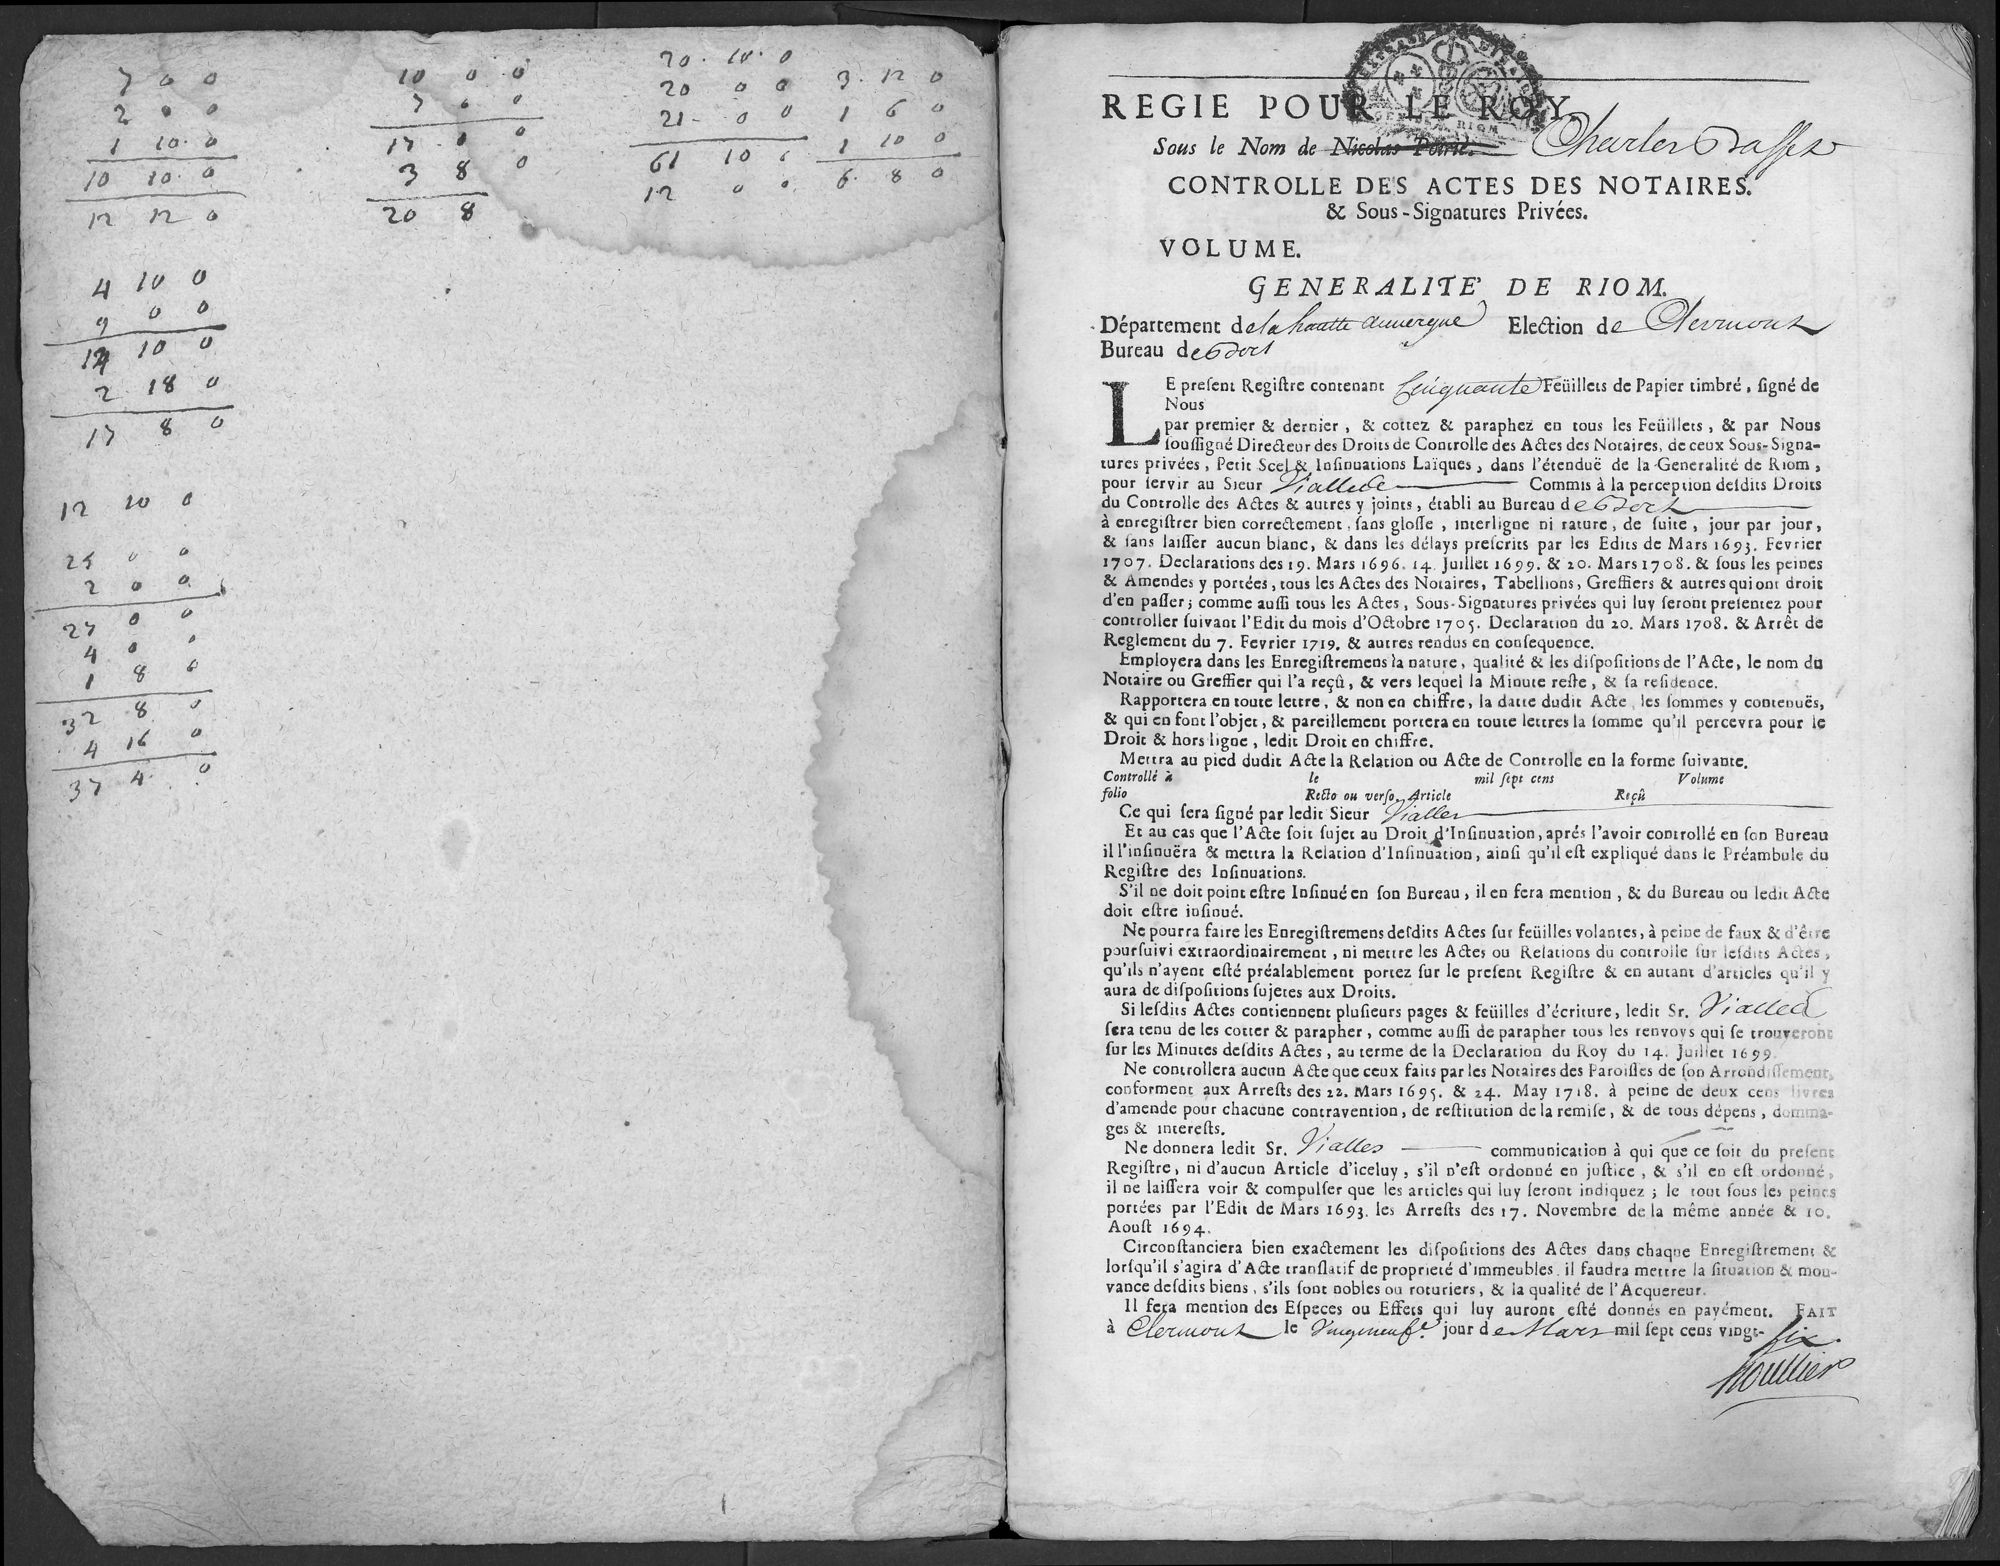 7 0 0
2 0 0
1 10 0
10 10 0
12 12 0
4 10 0
9 0 0
14 10 0
2 18 0
17 8 0
12 10 0
25 0 0
2 0 0
27 0 0
4 0 0
1 8 0
32 8 0
4 16 0
37 4 0
10 0 0
7 0 0
17 0 0
3 8 0
20 8
20 10 0
20 0 0
21 0 0
61 10 0
12 0 0
3 12 0
1 6 0
1 10 0
6 8 0
REGIE POUR LE ROY,
Sous le Nom de Nicolas Poirié. Charles
CONTROLLE DES ACTES DES NOTAIRES.
& Sous-Signatures Privées.
VOLUME.
GENERALITE' DE RIOM.
Département de la hautte auvergne Election de Clermont
Bureau de Bort
LE present Registre contenant Cinquante Feüillets de Papier timbré, signé de
Nous
par premier & dernier, & cottez & paraphez en tous les Feüillets, & par Nous
soussigné Directeur des Droits de Controlle des Actes des Notaires, de ceux Sous-Signa-
tures privées, Petit Scel & Insinuations Laïques, dans l'étenduë de la Generalité de Riom,
pour servir au Sieur Commis à la perception desdits Droits
du Controlle des Actes & autres y joints, établi au Bureau de Bort
à enregistrer bien correctement, sans glosse, interligne ni rature, de suite, jour par jour,
& sans laisser aucun blanc, & dans les délays prescrits par les Edits de Mars 1693. Fevrier
1707. Declarations des 19. Mars 1696. 14. Juillet 1699. & 20. Mars 1708. & sous les peines
& Amendes y portées, tous les Actes des Notaires, Tabellions, Greffiers & autres qui ont droit
d'en passer; comme aussi tous les Actes, Sous-Signatures privées qui luy seront presentez pour
controller suivant l'Edit du mois d'Octobre 1705. Declaration du 20. Mars 1708. & Arrêt de
Reglement du 7. Fevrier 1719. & autres rendus en consequence.
Employera dans les Enregistremens la nature, qualité & les dispositions de l'Acte, le nom du
Notaire ou Greffier qui l'a reçû, & vers lequel la Minute reste, & sa residence.
Rapportera en toute lettre, & non en chiffre, la datte dudit Acte, les sommes y contenuës,
& qui en font l'objet, & pareillement portera en toute lettres la somme qu'il percevra pour le
Droit & hors ligne, ledit Droit en chiffre.
Mettra au pied dudit Acte la Relation ou Acte de Controlle en la forme suivante.
Controllé à le mil sept cens Volume
folio Recto ou verso, Article Reçû
Ce qui sera signé par ledit Sieur Vialles
Et au cas que l'Acte soit sujet au Droit d'Insinuation, aprés l'avoir controllé en son Bureau
il l'insinuëra & mettra la Relation d'Insinuation, ainsi qu'il est expliqué dans le Préambule du
Registre des Insinuations.
S'il ne doit point estre Insinué en son Bureau, il en fera mention, & du Bureau ou ledit Acte
doit estre insinué.
Ne pourra faire les Enregistremens desdits Actes sur feüilles volantes, à peine de faux & d'être
poursuivi extraordinairement, ni mettre les Actes ou Relations du controlle sur lesdits Actes,
qu'ils n'ayent esté préalablement portez sur le present Registre & en autant d'articles qu'il y
aura de dispositions sujetes aux Droits.
Si lesdits Actes contiennent plusieurs pages & feüilles d'écriture, ledit Sr. Vialles
sera tenu de les cotter & parapher, comme aussi de parapher tous les renvoys qui se trouveront
sur les Minutes desdits Actes, au terme de la Declaration du Roy du 14. Juillet 1699.
Ne controllera aucun Acte que ceux faits par les Notaires des Paroisses de son Arrondissement,
conforment aux Arrests des 22. Mars 1695. & 24. May 1718. à peine de deux cens livres
d'amende pour chacune contravention, de restitution de la remise, & de tous dépens, domma-
ges & interests.
Ne donnera ledit Sr. Vialles communication à qui que ce soit du present
Registre, ni d'aucun Article d'iceluy, s'il n'est ordonné en justice, & s'il en est ordonné,
il ne laissera voir & compulser que les articles qui luy seront indiquez; le tout sous les peines
portées par l'Edit de Mars 1693. les Arrests des 17. Novembre de la même année & 10.
Aoust 1694.
Circonstanciera bien exactement les dispositions des Actes dans chaque Enregistrement &
lorsqu'il s'agira d'Acte translatif de proprieté d'immeubles, il faudra mettre la situation & mou-
vance desdits biens, s'ils sont nobles ou roturiers, & la qualité de l'Acquereur.
Il fera mention des Especes ou Effets qui luy auront esté donnés en payément. FAIT
à Clermont le Vingtneuf.e jour de Mars mil sept cens vingt-six.